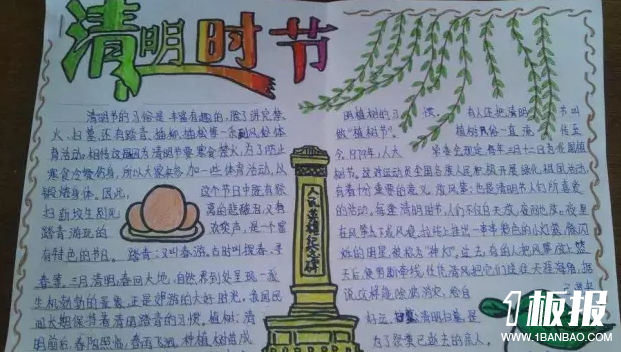 清明时节
清明节的习俗是丰富有趣的,除了讲究禁
火、扫墓,还有踏青、插柳、植松等一系列风俗体
育活动。相传这是因为清明节要寒食禁火,为了防止
寒食冷餐伤身,所以大家来参加一些体育活动,以
锻炼身体。因此, 这个节日中既有祭
扫新坟生别死 离的悲酸泪,又有
踏青游玩的 欢笑声,是一个富
有特色的节日。 踏青:又叫春游。古时叫探春、寻
春等。三月清明,春回大地,自然界到处呈现一派
生机勃勃的景象,正是郊游的大好时光。我国民
间长期保持着清明踏青的习惯。植树:清
明前后,春阳照临,春雨飞洒,种植树苗成
人民英雄纪念碑
明植树的习 惯。 有人还把清明 节叫
做“植树节”。 植树风俗一直流 传至
今。1979年,人大 常委会规定,每年三月十二日为我国植
树节。这对动员全国各族人民积极开展绿化祖国活动,
有着十分重要的意义。放风筝:也是清明节人们所喜爱
的活动。每逢清明时节,人们不仅白天放,夜间也放。夜里
在风筝下或风稳拉线上挂上一串串彩色的小灯笼,像闪
烁的明星,被称为“神灯”。过去,有的人把风筝放上蓝
天后,便剪断牵线,任凭清风把它们送往天涯海角,据
说这样能除病消灾,给自
好运。 清明扫墓,是
为了祭奠已逝去的亲人。
1板报
WWW.1BANBAO.COM